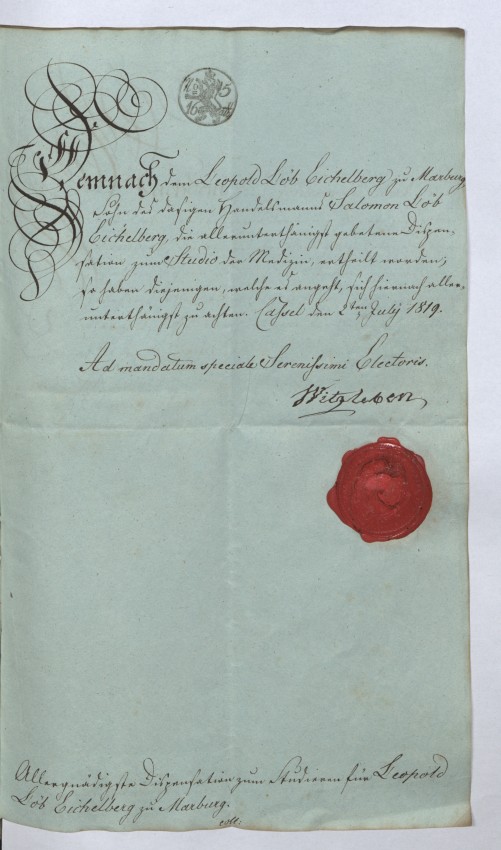 Demnach dem Leopold Löb Eichelberg zu Marburg,
Sohn des dasigen Handelsmanns Salomon Löb
Eichelberg, die allerunterthänigst gebetene Dispen-
sation zum Studio der Medizin, ertheilt worden;
so haben diejenigen, welche es angeht, sich hiernach aller-
unterthänigst zu achten. Cassel den 2ten July 1819.
Ad mandatum speciale Serenissimi Electoris.
Witzleben
Allergnädigste Dispensation zum Studieren für Leopold
Löb Eichelberg zu Marburg.